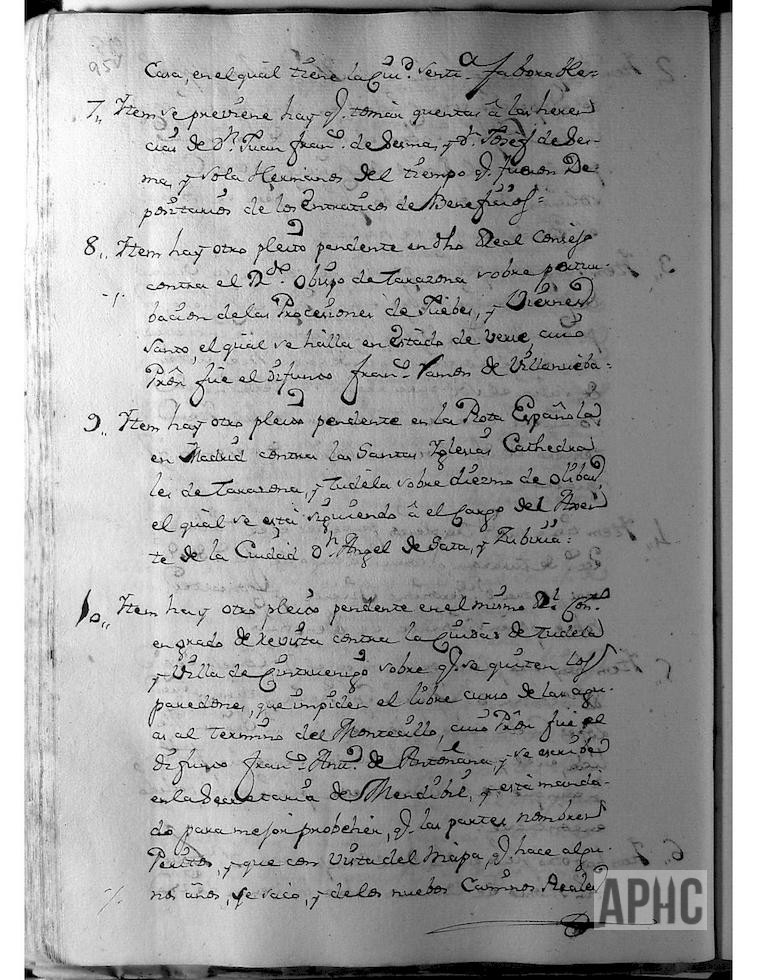 95v
Casa, en el qual tiene la Ciud. sent.a faborable=
7,, Item se previene hay q. tomar quentas â las heren
cias de Dn. Juan Franco. de Sesma, y Dn. Joseph de Ses-
ma, y Sola Hermanos del tiempo q. fueron De
positarios de los Entraticos de Beneficios=
8,, Item hay otro pleito pendente en dho Real Consejo
contra el Rdo. Obispo de Tarazona sobre pertur-
bacion de las Procesiones de Juebes, y Viernes
Santo, el qual se hàlla en Estado de verse, cuio
Prôr fue el difunto Franco. Ramon de Villanueba=
9,, Item hay otro pleito pendente en la Rota Española
en Madrid contra las Santas Iglesias Cathedra
les de Tarazona, y Tudela sobre diezmo de olibas
el qual se està siguiendo â el Cargo del Agen
te de la Ciudad Dn. Angel de Sata, y Zubiria=
10,, Item hay otro pleito pendente en el mismo Rl. Cons.
en grado de revista contra la Ciudad de Tudela
y Villa de Cintruenigo sobre q. se quiten los
paredones, que impiden el libre curso de las agu-
as al termino del Montecillo, cuio Prôr fue el
difunto Franco. Anto. de Antoñana, y se escribe
en la Secretaria de Mendibil, y està manda-
do para mejor probeher, q. las partes nombren
Peritos, y que con vista del Mapa, q. hace algu-
nos años, se sacò, y de los nuebos Caminos Reales
APHC